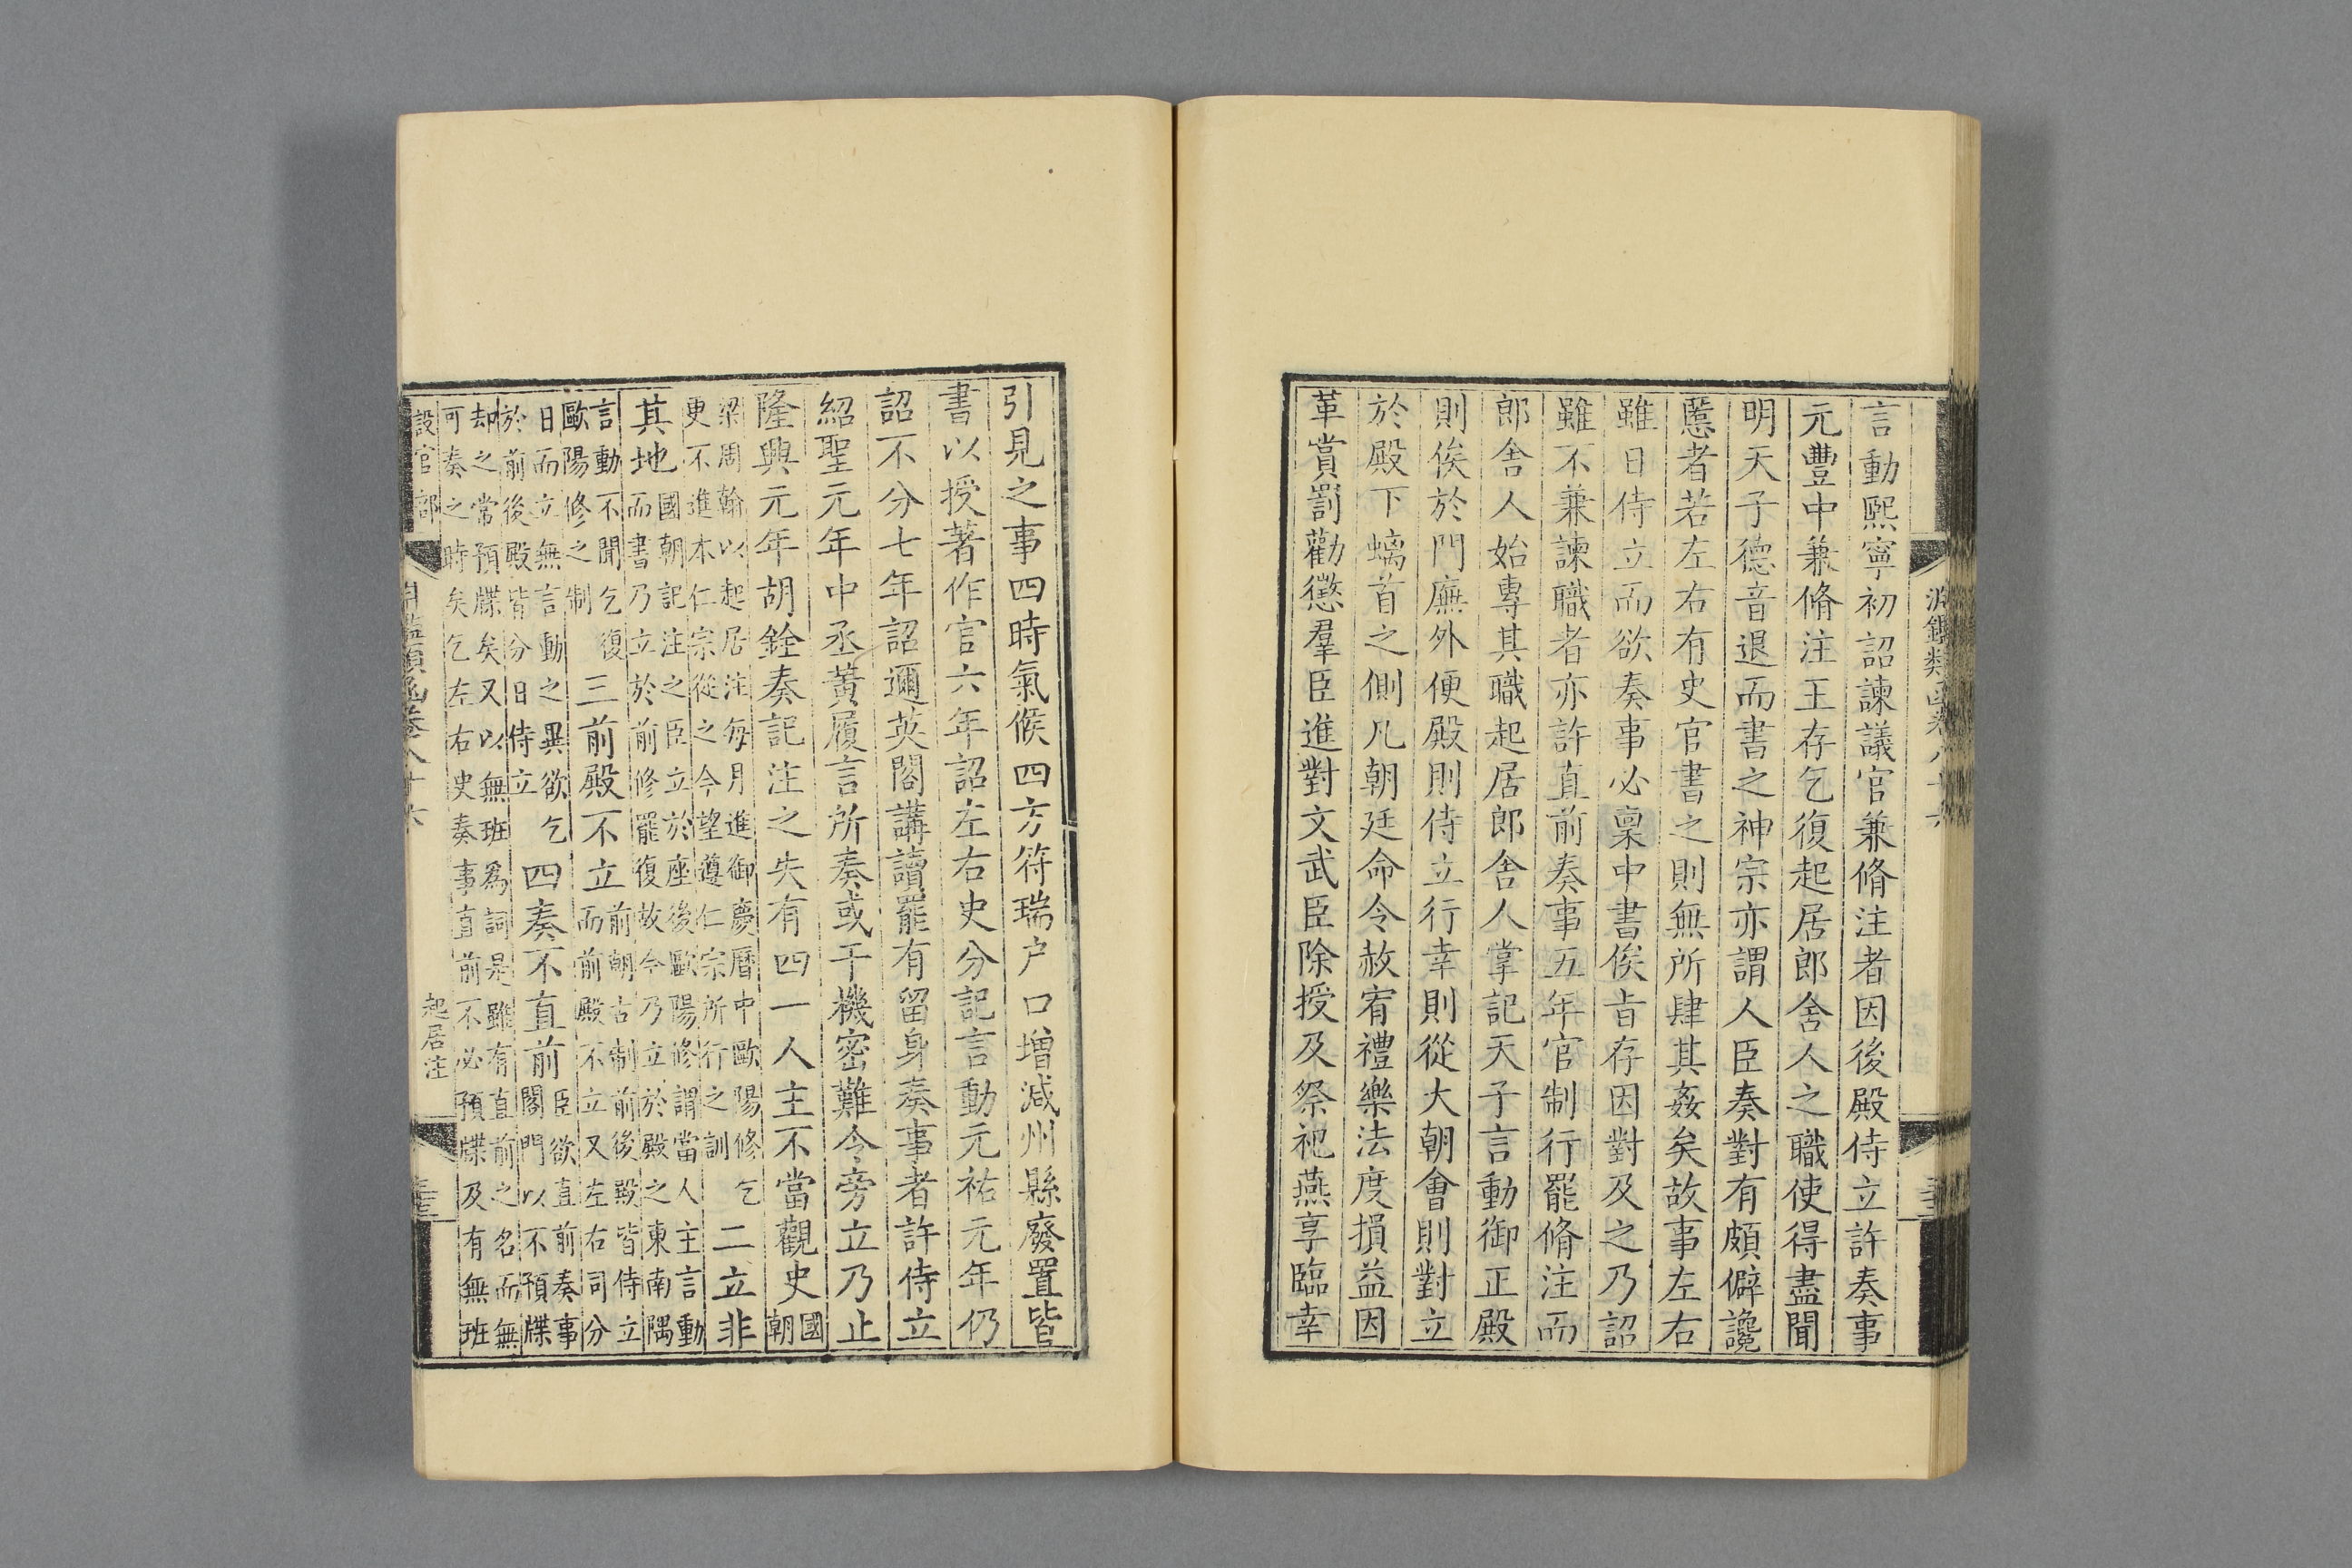 淵鑑類函卷八十六
言動熙寧初詔諫議官兼脩注者因後殿侍立許奏事
元豐中兼脩注王存乞復起居郎舍人之職使得盡聞
明天子德音退而書之神宗亦謂人臣奏對有頗僻讒
慝者若左右有史官書之則無所肆其姦矣故事左右
雖日侍立而欲奏事必稟中書俟旨存因對及之乃詔
雖不兼諫職者亦許直前奏事五年官制行罷脩注而
郎舍人始專其職起居郎舍人掌記天子言動御正殿
則俟於門廡外便殿則侍立行幸則從大朝會則對立
於殿下螭首之側凡朝廷命令赦宥禮樂法度損益因
革賞罰勸懲羣臣進對文武臣除授及祭祀燕享臨幸
引見之事四時氣候四方符瑞户口增減州縣廢置皆
書以授著作官六年詔左右史分記言動元祐元年仍
詔不分七年詔邇英閣講讀罷有留身奏事者許侍立
紹聖元年中丞黃履言所奏或干機密難令旁立乃止
隆興元年胡銓奏記注之失有四一人主不當觀史國朝
梁周翰以起居注每月進御慶曆中歐陽修乞
更不進本仁宗從之今望遵仁宗所行之訓
二立非
其地
國朝記注之臣立於座後歐陽修謂當人主言動
而書乃立於前修罷復故今乃立於殿之東南隅
言動不聞乞復
歐陽修之制
三前殿不立
前朝古制前後殿皆侍立
而前殿不立又左右司分
日而立無言動之異欲乞
於前後殿皆分日侍立
四奏不直前
臣欲直前奏事
閣門以不預牒
却之常預牒矣又以無班為詞是雖有直前之名而無
可奏之時矣乞左右史奏事直前不必預牒及有無班
設官部
淵鑑類函卷八十六
起居注